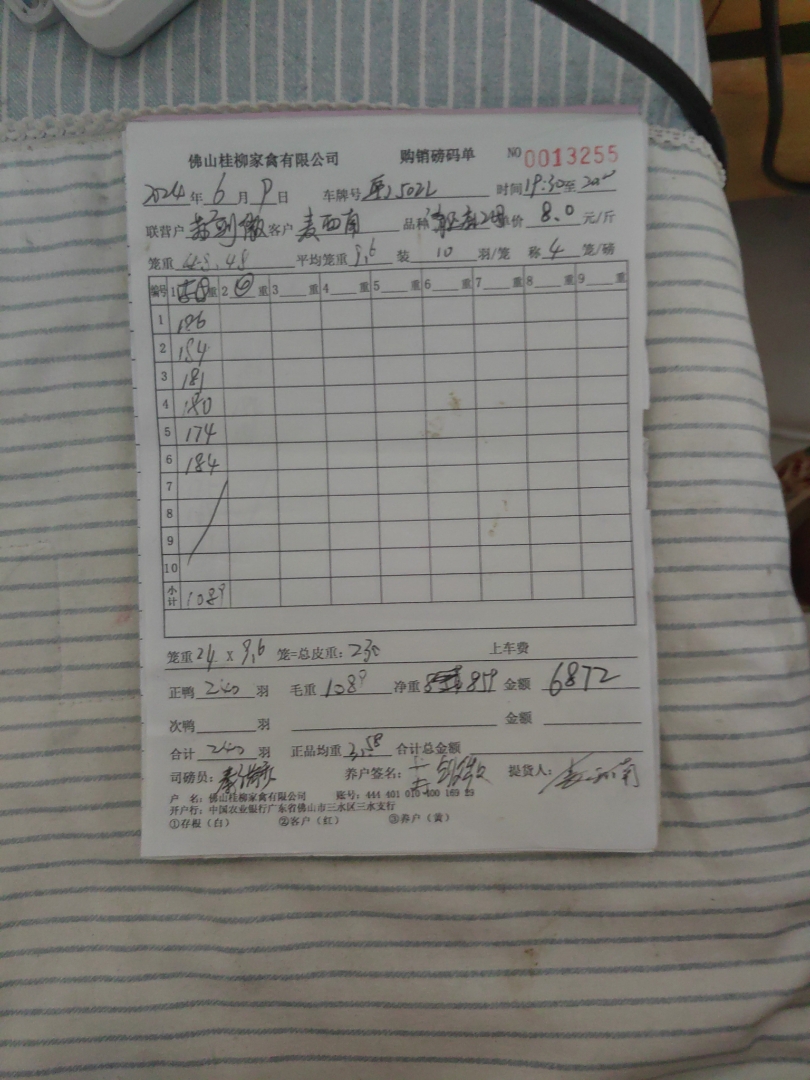 佛山桂柳家禽有限公司 购销磅码单 NO 0013255
2024年6月9日 车牌号 时间19:30至
联营户 客户 麦西南 品种 单价 8.0 元/斤
笼重 48.48 平均笼重 9.6 装 10 羽/笼 称 4 笼/磅
编号 1 重 2 重 3 重 4 重 5 重 6 重 7 重 8 重 9 重
1 186
2 184
3 181
4 180
5 174
6 184
7
8
9
10
小计 1089
笼重 24 X 9.6 笼=总皮重: 230 上车费
正鸭 240 羽 毛重 1089 净重 859 金额 6872
次鸭 羽 金额
合计 240 羽 正品均重 3.58 合计总金额
司磅员: 养户签名: 提货人:
户 名: 佛山桂柳家禽有限公司 账号: 444 401 010 400 169 29
开户行: 中国农业银行广东省佛山市三水区三水支行
①存根(白) ②客户(红) ③养户(黄)